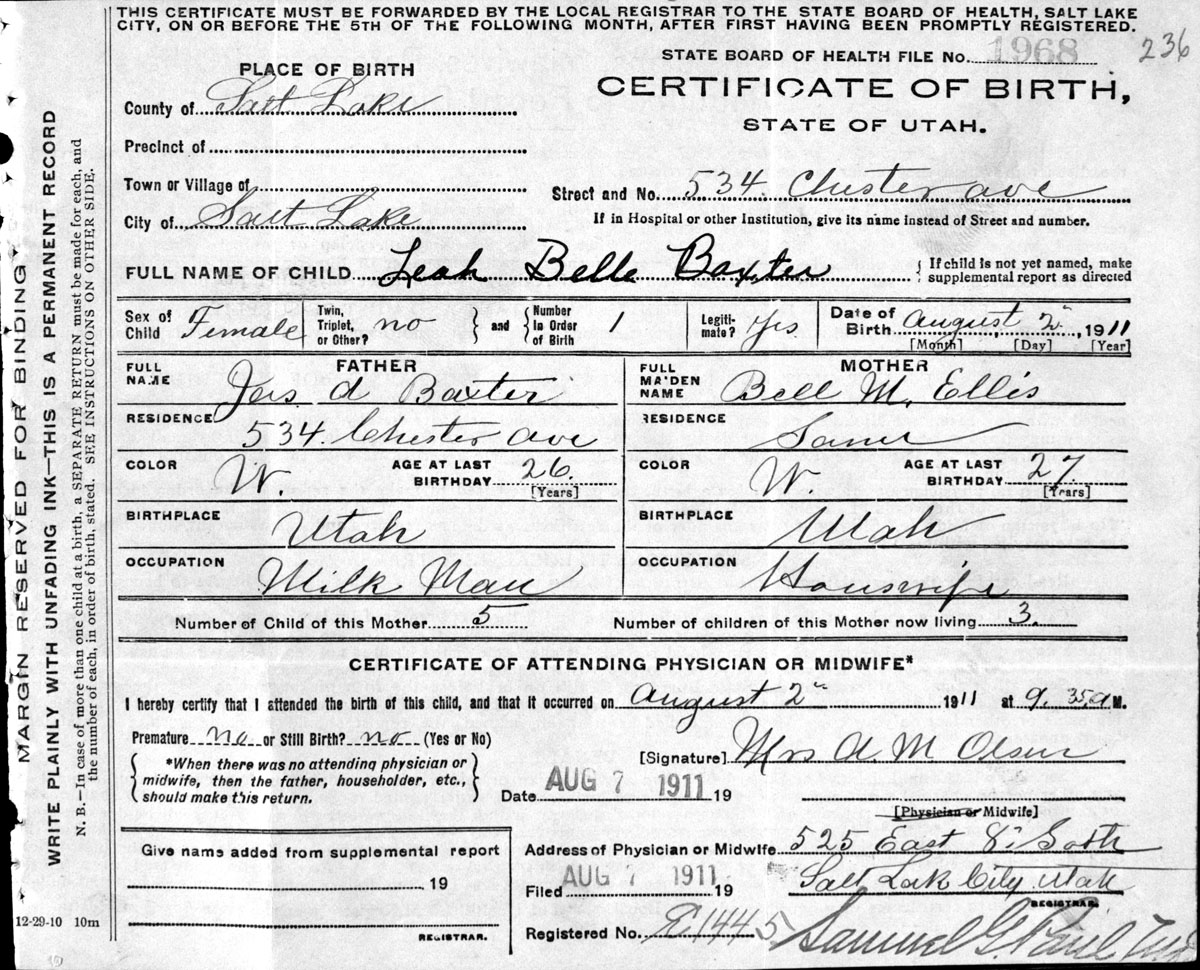 THIS CERTIFICATE MUST BE FORWARDED BY THE LOCAL REGISTRAR TO THE STATE BOARD OF HEALTH, SALT LAKE
CITY, ON OR BEFORE THE 5TH OF THE FOLLOWING MONTH, AFTER FIRST HAVING BEEN PROMPTLY REGISTERED.
STATE BOARD OF HEALTH FILE No. 1968 236
PLACE OF BIRTH
CERTIFICATE OF BIRTH,
STATE OF UTAH.
County of Salt Lake
Precinct of
Town or Village of
Street and No. 534. Chester ave
City of Salt Lake
If in Hospital or other Institution, give its name instead of Street and number.
FULL NAME OF CHILD Leah Belle Baxter
{ If child is not yet named, make
supplemental report as directed
Sex of Child Female
Twin, Triplet, or Other? no } and { Number In Order of Birth 1
Legiti-mate? Yes
Date of Birth August 2, 1911
[Month] [Day] [Year]
FATHER
FULL NAME Jas A Baxter
RESIDENCE 534. Chester Ave
COLOR W. AGE AT LAST BIRTHDAY 26.
[Years]
BIRTHPLACE Utah
OCCUPATION Milk Man
MOTHER
FULL MAIDEN NAME Bell M. Ellis
RESIDENCE Same
COLOR W. AGE AT LAST BIRTHDAY 27.
[Years]
BIRTHPLACE Utah
OCCUPATION Houswife
Number of Child of this Mother 5 Number of children of this Mother now living 3.
CERTIFICATE OF ATTENDING PHYSICIAN OR MIDWIFE*
I hereby certify that I attended the birth of this child, and that it occurred on August 2" 1911 at 9.35 a M.
Premature no or Still Birth? no (Yes or No)
{ *When there was no attending physician or
midwife, then the father, householder, etc.,
should make this return. }
[Signature] Mrs A. M Olsen
Date AUG 7 1911 19
[Physician or Midwife]
Address of Physician or Midwife 525 East 8" South
Salt Lak City, Utah
Filed AUG 7 1911 19
REGISTRAR.
Registered No. 1445 Samuel G. Paul
Give name added from supplemental report
19
REGISTRAR.
12-29-10 10m
MARGIN RESERVED FOR BINDING
WRITE PLAINLY WITH UNFADING INK—THIS IS A PERMANENT RECORD
N. B.—In case of more than one child at a birth, a SEPARATE RETURN must be made for each, and
the number of each, in order of birth, stated. SEE INSTRUCTIONS ON OTHER SIDE.